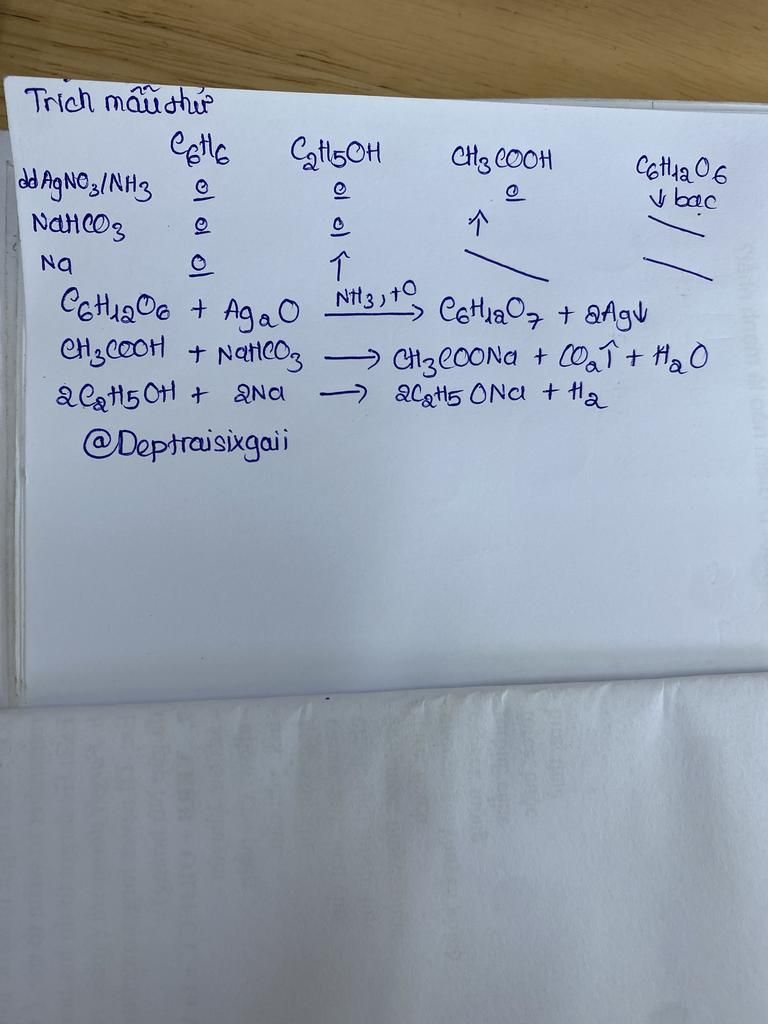 Trích mẫu thử
C6H6 C2H5OH CH3COOH C6H12O6
dd AgNO3/NH3 0 0 0 ↓ bạc
NaHCO3 0 0 ↑ —
Na 0 ↑ — —
C6H12O6 + Ag2O NH3, t0 → C6H12O7 + 2Ag↓
CH3COOH + NaHCO3 → CH3COONa + CO2↑ + H2O
2C2H5OH + 2Na → 2C2H5ONa + H2
@Deptraisixgaii